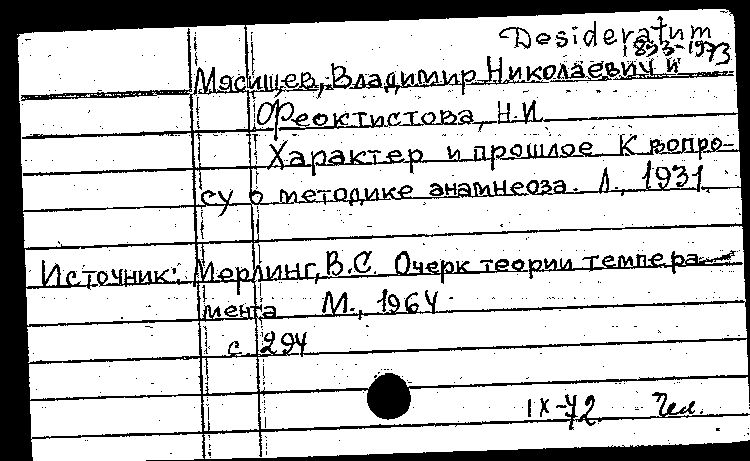 Desideratum
1893-1973
Мясищев, Владимир Николаевич и
Феоктистова, Н.И.
Характер и прошлое К вопро-
су о методике анамнеоза. Л., 1931.
Источник: Мерлинг, В.С. Очерк теории темпера-
мента М., 1964.
с. 294
IX-72 Чел.